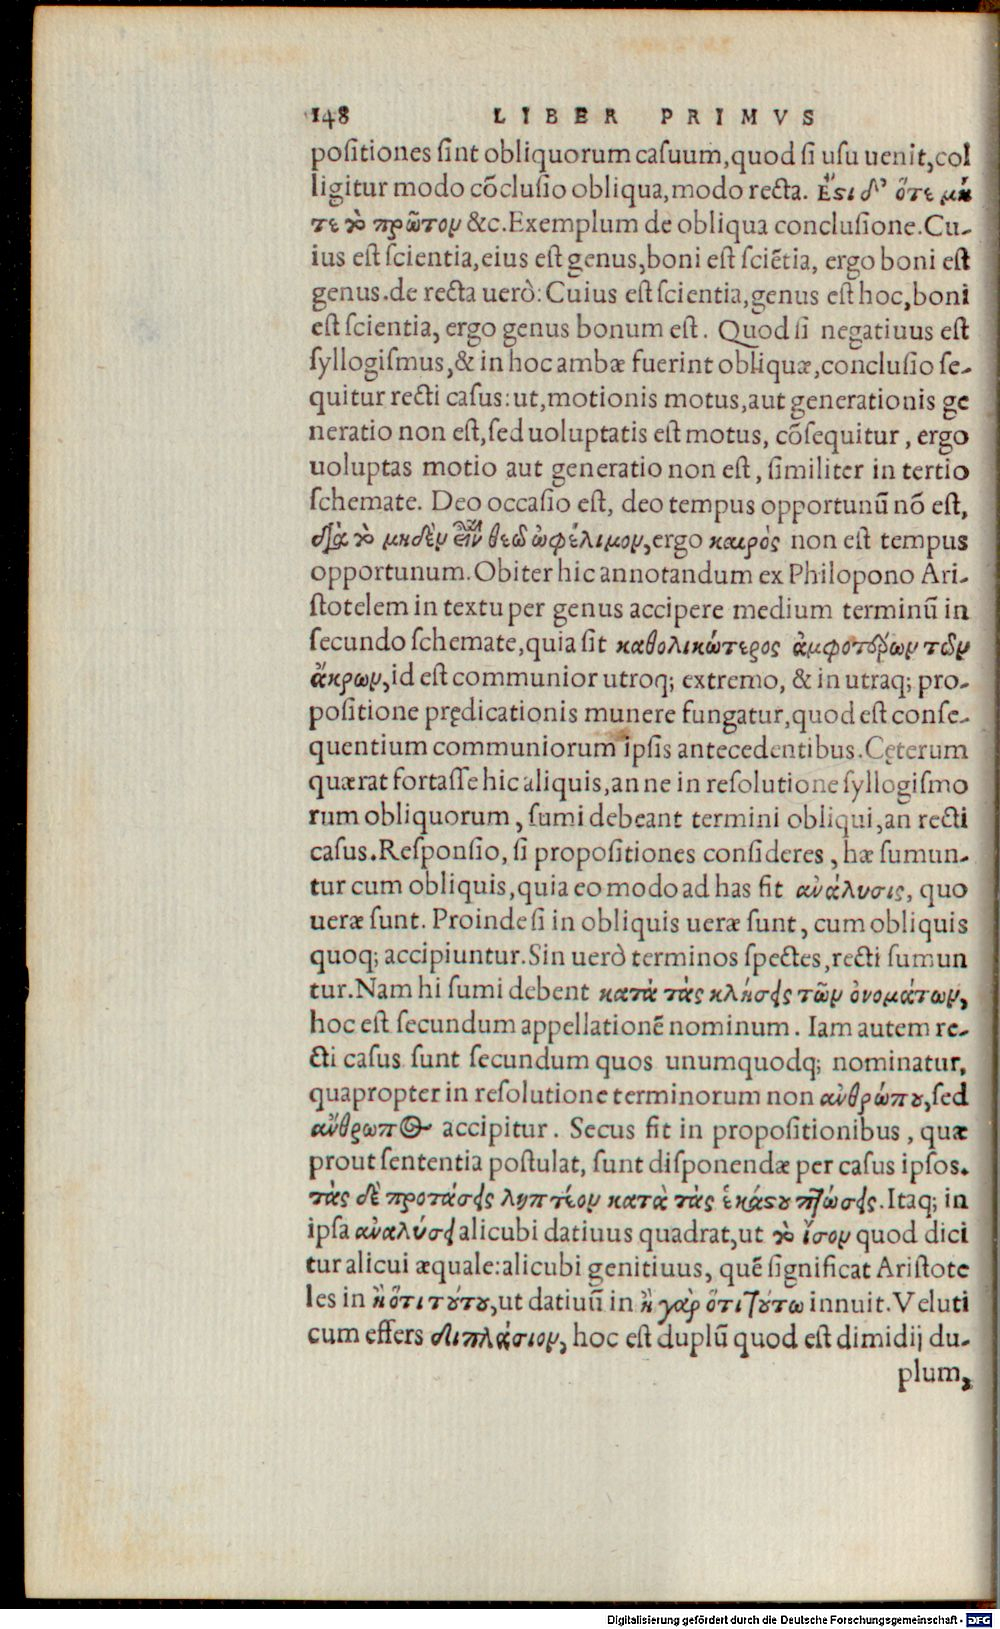 148 LIBER PRIMVS
poſitiones ſint obliquorum caſuum, quod ſi uſu uenit, col
ligitur modo cõcluſio obliqua, modo recta. Ἔστι δ' ὅτε μή
τε τὸ πρῶτον &c. Exemplum de obliqua concluſione. Cu-
ius eſt ſcientia, eius eſt genus, boni eſt ſciẽtia, ergo boni eſt
genus. de recta uerò: Cuius eſt ſcientia, genus eſt hoc, boni
eſt ſcientia, ergo genus bonum eſt. Quod ſi negatiuus eſt
ſyllogiſmus, & in hoc ambæ fuerint obliquæ, concluſio ſe-
quitur recti caſus: ut, motionis motus, aut generationis ge
neratio non eſt, ſed uoluptatis eſt motus, cõſequitur, ergo
uoluptas motio aut generatio non eſt, ſimiliter in tertio
ſchemate. Deo occaſio eſt, deo tempus opportunũ nõ eſt,
διὰ τὸ μηδὲν εἶναι θεῷ ὠφέλιμον, ergo καιρὸς non eſt tempus
opportunum. Obiter hic annotandum ex Philopono Ari-
ſtotelem in textu per genus accipere medium terminũ in
ſecundo ſchemate, quia ſit καθολικώτερος ἀμφοτέρων τῶν
ἄκρων, id eſt communior utroq; extremo, & in utraq; pro-
poſitione prędicationis munere fungatur, quod eſt conſe-
quentium communiorum ipſis antecedentibus. Cęterum
quærat fortaſſe hic aliquis, an ne in reſolutione ſyllogiſmo
rum obliquorum, ſumi debeant termini obliqui, an recti
caſus. Reſponſio, ſi propoſitiones conſideres, hæ ſumun-
tur cum obliquis, quia eo modo ad has fit ἀνάλυσις, quo
ueræ ſunt. Proinde ſi in obliquis ueræ ſunt, cum obliquis
quoq; accipiuntur. Sin uerò terminos ſpectes, recti ſumun
tur. Nam hi ſumi debent κατὰ τὰς κλήσεις τῶν ὀνομάτων,
hoc eſt ſecundum appellationẽ nominum. Iam autem re-
cti caſus ſunt ſecundum quos unumquodq; nominatur,
quapropter in reſolutione terminorum non ἀνθρώπου, ſed
ἄνθρωπος accipitur. Secus fit in propoſitionibus, quæ
prout ſententia poſtulat, ſunt diſponendæ per caſus ipſos.
τὰς δὲ προτάσεις ληπτέον κατὰ τὰς ἑκάστου πτώσεις. Itaq; in
ipſa ἀναλύσει alicubi datiuus quadrat, ut τὸ ἴσον quod dici
tur alicui æquale: alicubi genitiuus, quẽ ſignificat Ariſtote
les in ἢ ὅτι τούτου, ut datiuũ in ἢ γὰρ ὅτι τούτῳ innuit. Veluti
cum effers διπλάσιον, hoc eſt duplũ quod eſt dimidij du-
plum,
Digitalisierung gefördert durch die Deutsche Forschungsgemeinschaft - DFG